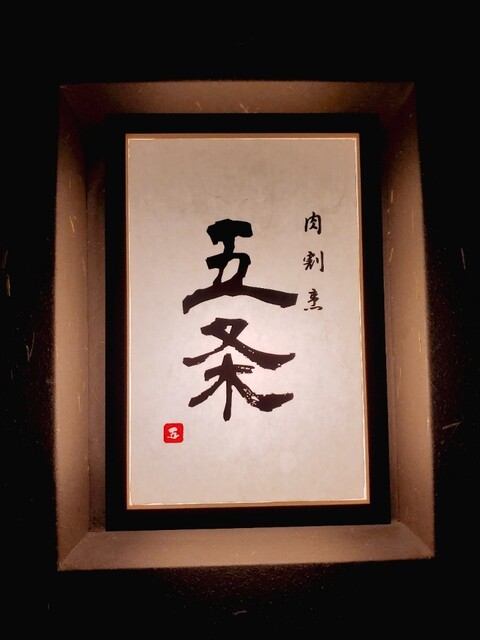 肉割烹
五条
五